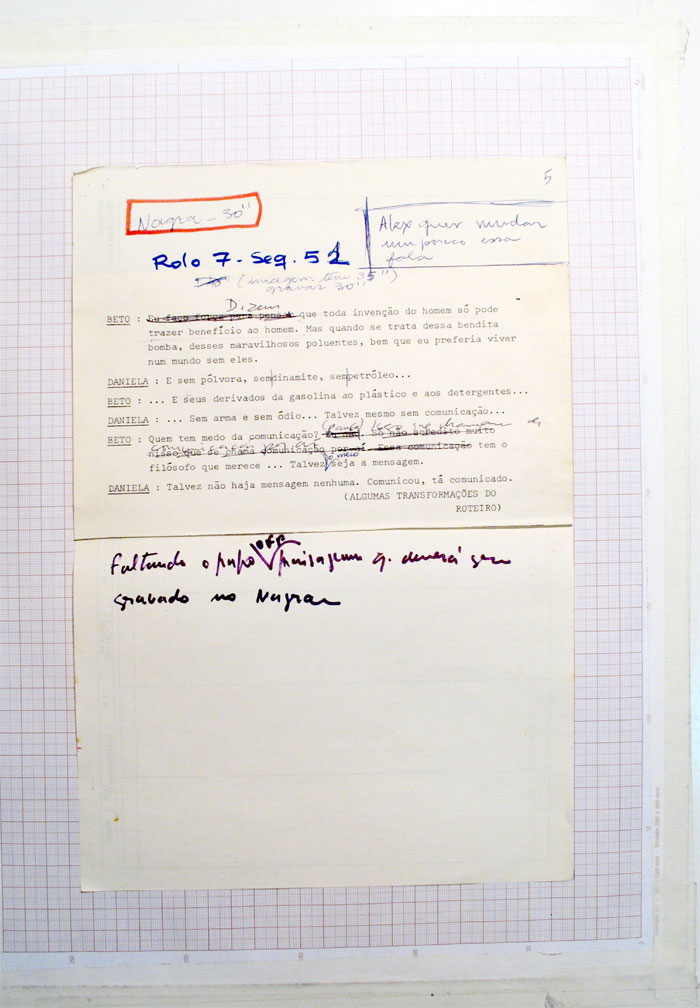 5
Nagra - 30"
Alex quer mudar
um pouco essa
fala
Rolo 7 - Seq. 51
(imagem tem 35")
gravar 30"
Dizem
BETO : Eu faço força para pensar que toda invenção do homem só pode
trazer benefício ao homem. Mas quando se trata dessa bendita
bomba, desses maravilhosos poluentes, bem que eu preferia viver
num mundo sem eles.
DANIELA : E sem pólvora, sem dinamite, sem petróleo...
BETO : ... E seus derivados da gasolina ao plástico e aos detergentes...
DANIELA : ... Sem arma e sem ódio... Talvez mesmo sem comunicação...
(pausa) de
BETO : Quem tem medo da comunicação? Eu não. Só não acredito muito
comunicação por aí
nisso que se chama comunicação por aí. Essa comunicação tem o
o meio
filósofo que merece ... Talvez seja a mensagem.
DANIELA : Talvez não haja mensagem nenhuma. Comunicou, tá comunicado.
(ALGUMAS TRANSFORMAÇÕES DO
ROTEIRO)
OFF
Faltando o papo paisagem q. deverá ser
gravado no Nagra